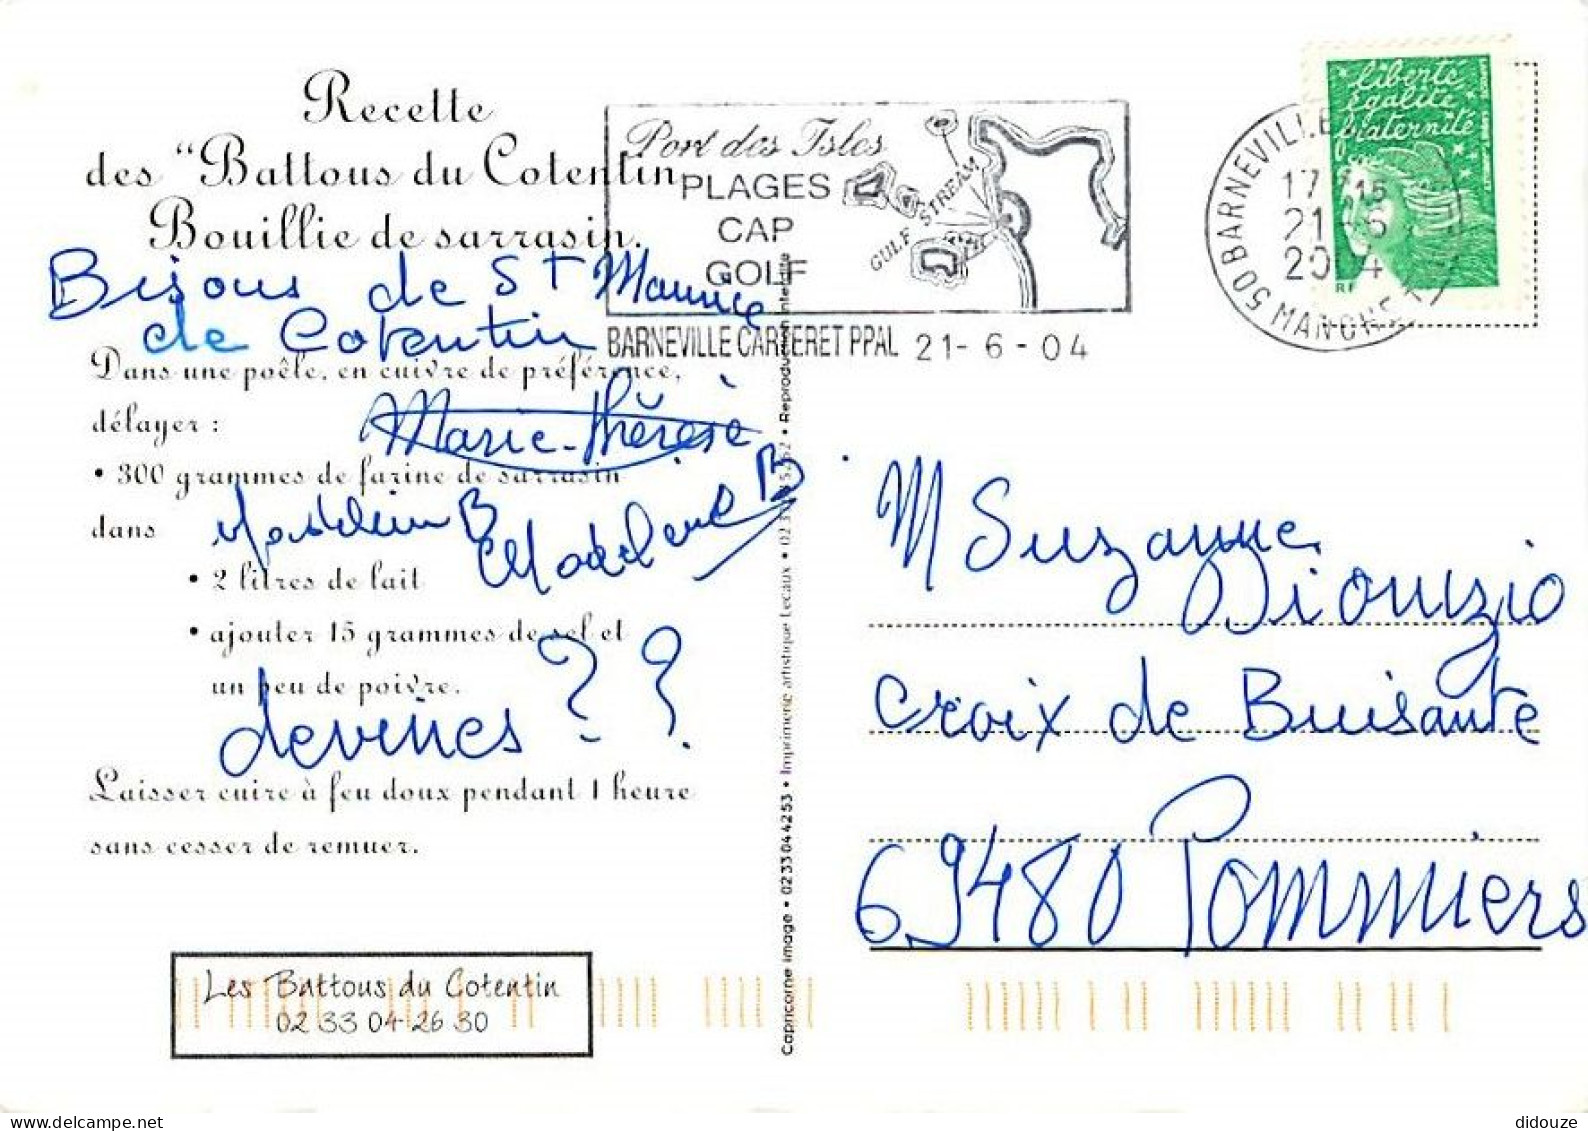 Recette
des "Battous du Cotentin
Bouillie de sarrasin.
Bisous de St Maurice
de Cotentin
Dans une poêle, en cuivre de préférence,
délayer :
Marie-Thérèse
• 300 grammes de farine de sarrasin
dans
Madeleine B
• 2 litres de lait
• ajouter 15 grammes de sel et
un peu de poivre.
devines ? ?
Laisser cuire à feu doux pendant 1 heure
sans cesser de remuer.
Les Battous du Cotentin
02 33 04 26 30
Port des Isles
PLAGES
CAP
GOLF
GULF STREAM
BARNEVILLE CARTERET PPAL 21-6-04
Capricorne Image • 0233044253 • Imprimerie artistique Lecaux •
• Reproduction interdite
liberté
égalité
fraternité
RF
50 BARNEVILLE
MANCHE
M Suzanne
Dionizio
Croix de Buisante
69480 Pommiers
didouze